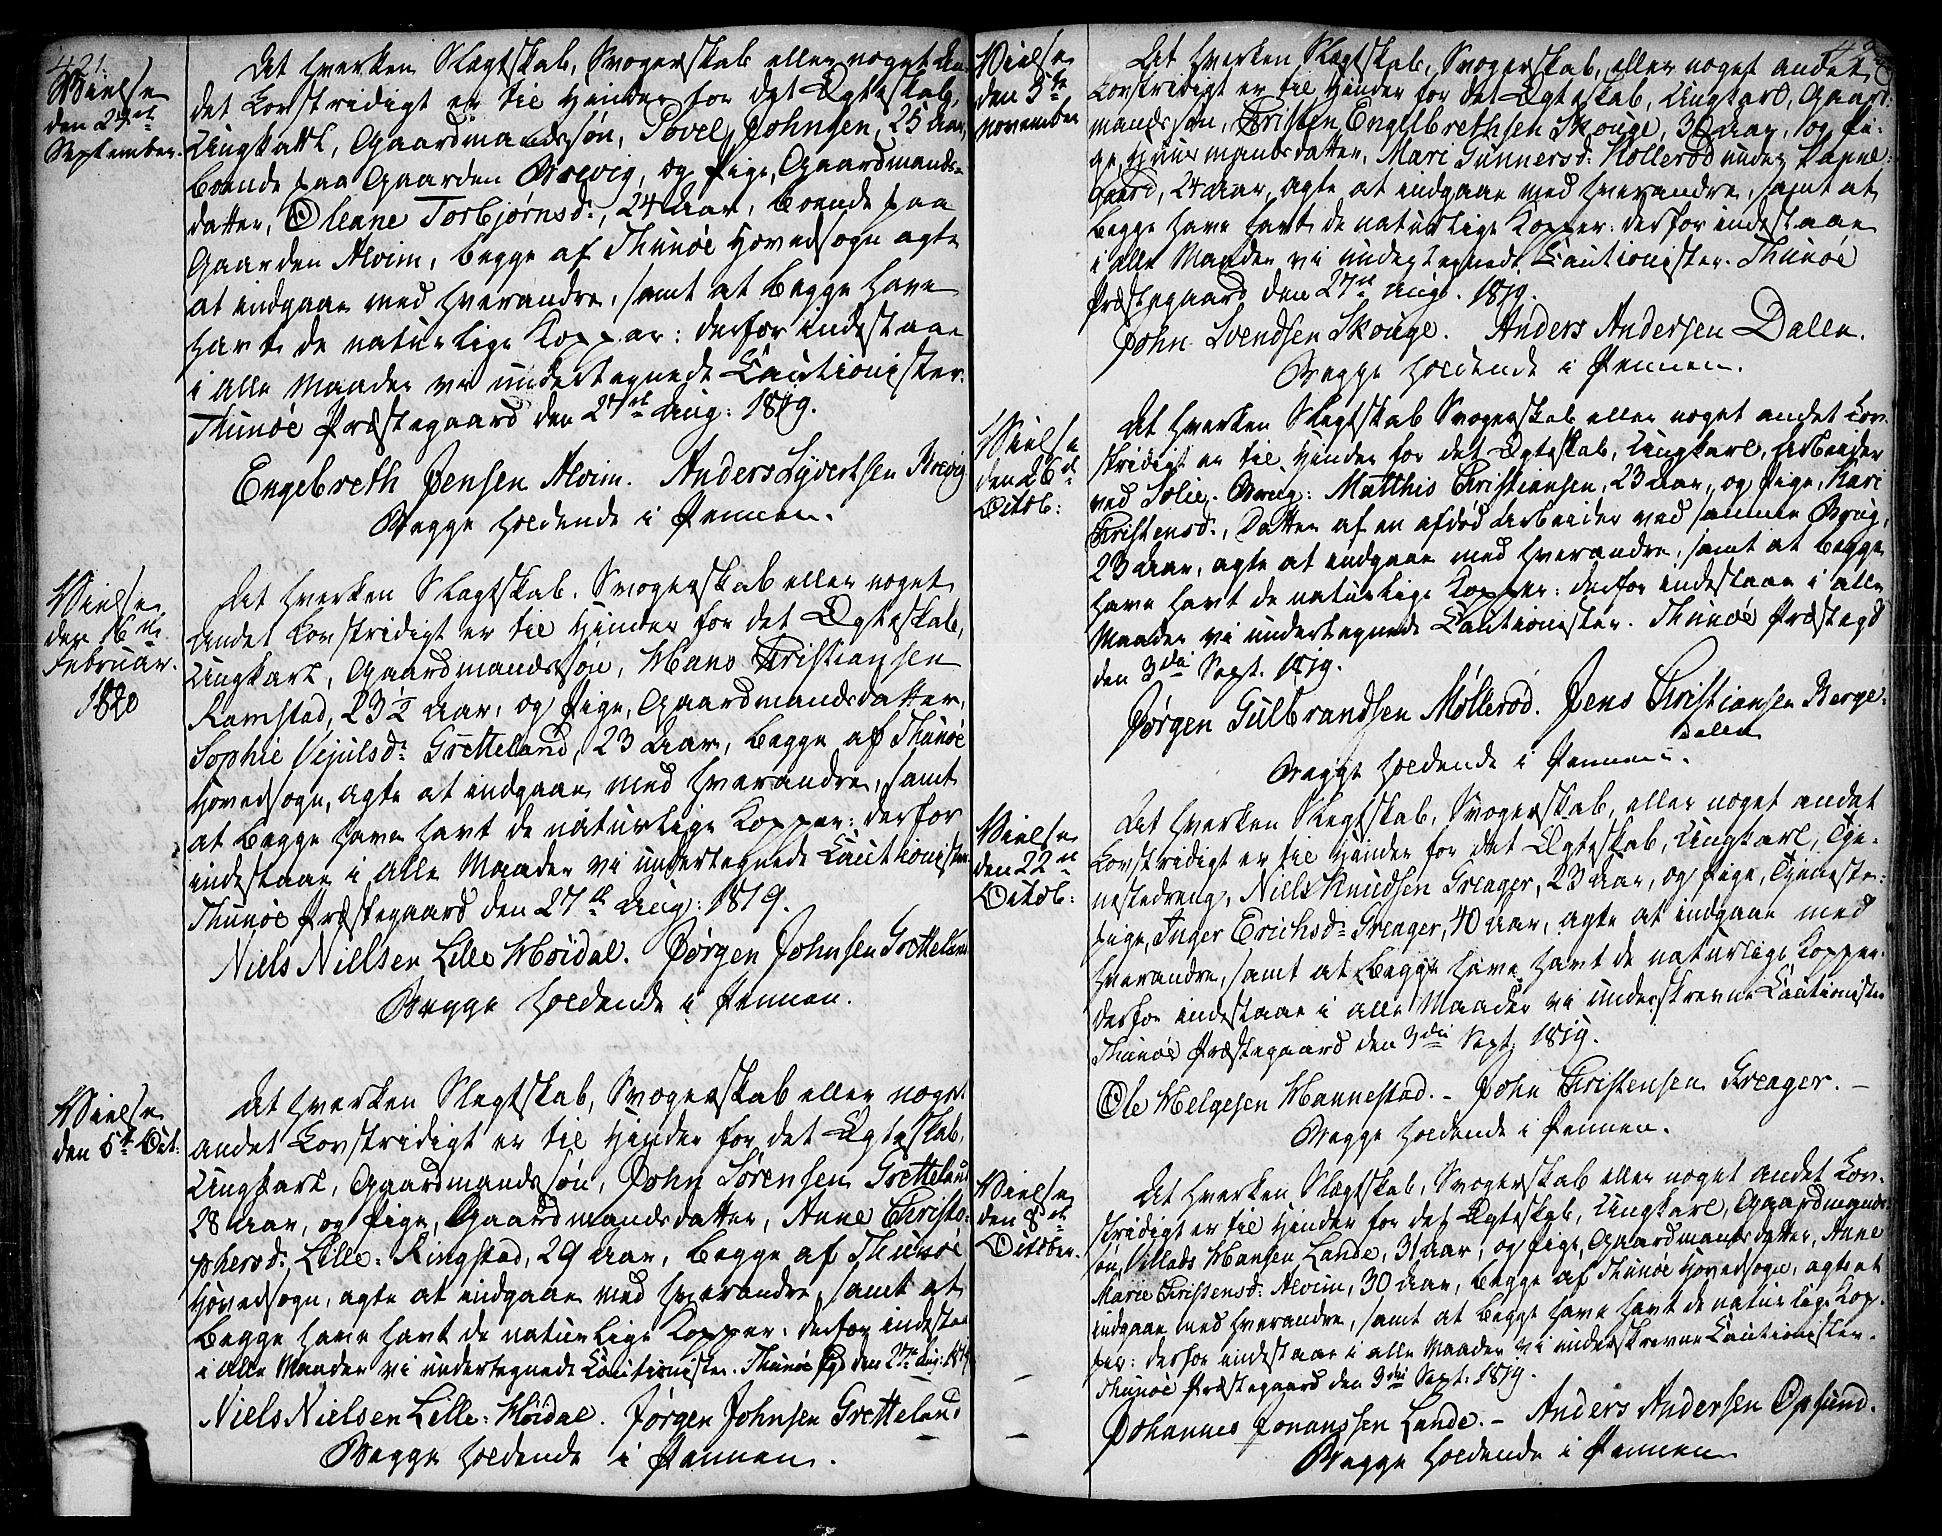 421.
Vielse
den 24de
September.
At hverken Slegtskab, Svogerskab eller noget An-
det Lovstridigt er til Hinder for det Ægteskab,
Ungkarl, Gaardmandssøn, Povel Johnsen, 25 Aar,
boende paa Gaarden Brevig, og Pige, Gaardmands-
datter, Oleane Torbjørnsd:, 24 Aar, boende paa
Gaarden Alvim, begge af Thunöe Hovedsogn agte
at indgaae med hverandre, samt at begge have
havt de naturlige Kopper: derfor indestaae
i alle Maader vi undertegnede Cautionister.
Thunöe Præstegaard den 27de Aug: 1819.
Engebreth Jensen Alvim. Anders Syvertsen Brevig
Begge holdende i Pennen.
Vielse
den 16de
Februar.
1820
At hverken Slegtskab, Svogerskab eller noget
andet Lovstridigt er til Hinder for det Ægteskab,
Ungkarl, Gaardmandssøn, Hans Christiansen
Ramstad, 23½ Aar, og Pige, Gaardmandsdatter,
Sophie Vejulsd: Gretteland, 23 Aar, begge af Thunöe
Hovedsogn, agte at indgaae med hverandre, samt
at begge have havt de naturlige Kopper: derfor
indestaae i alle Maader vi undertegnede Cautionister
Thunöe Præstegaard den 27de Aug: 1819.
Niels Nielsen Lille Høidal. Jørgen Johnsen Gretteland
Begge holdende i Pennen.
Vielse
den 5te Oct:
At hverken Slegtskab, Svogerskab eller noget
andet Lovstridigt er til Hinder for det Ægteskab,
Ungkarl, Gaardmandssøn, John Sörensen Gretteland
28 Aar, og Pige, Gaardmandsdatter, Anne Christo-
phersd: Lille-Ringstad, 29 Aar, begge af Thunöe
Hovedsogn, agte at indgaae med hverandre, samt at
begge have havt de naturlige Kopper: derfor indestaae
i alle Maader vi undertegnede Cautionister. Thunöe Pgd den 27de Aug: 1819
Niels Nielsen Lille-Høidal. Jørgen Johnsen Gretteland
Begge holdende i Pennen.
Vielse
den 5te
November
At hverken Slegtskab, Svogerskab, eller noget andet
Lovstridigt er til Hinder for det Ægteskab, Ungkarl, Gaard-
mandssøn, Christen Engelbrethsen Skouge, 30 Aar, og Pi-
ge, Huusmandsdatter, Mari Gunnersd: Kollerød under
24 Aar, agte at indgaae med hverandre, samt at
begge have havt de naturlige Kopper: derfor indestaae
i alle Maader vi undertegnede Cautionister. Thunöe
Præstegaard den 27de Aug. 1819.
John Svendsen Skouge. Anders Andersen Dalen.
Begge holdende i Pennen.
Vielse
den 26de
Octob:
At hverken Slegtskab Svogerskab eller noget andet Lov-
stridigt er til Hinder for det Ægteskab, Ungkarl, Arbeider
ved Solie-Brug: Matthis Christiansen, 23 Aar, og Pige, Kari
Christensd:, Datter af en afdöd Arbeider ved samme Brug,
23 Aar, agte at indgaae med hverandre, samt at begge
have havt de naturlige Kopper: derfor indestaae i alle
Maader vi undertegnede Cautionister. Thunöe Præstegd
den 3die Sept. 1819.
Jørgen Gulbrandsen Möllerød. Jens Christiansen Berge-
dalen
Begge holdende i Pennen.
Vielse
den 22de
Octob:
At hverken Slegtskab, Svogerskab, eller noget andet
Lovstridigt er til Hinder for det Ægteskab, Ungkarl, Tje-
nestedreng, Niels Knudsen Greager, 23 Aar, og Pige, Tjeneste-
pige, Inger Erichsd: Greager, 40 Aar, agte at indgaae med
hverandre, samt at begge have havt de naturlige Kopper.
derfor indestaae i alle Maader vi underskrevne Cautionister
Thunöe Præstegaard den 3die Sept: 1819.
Ole Helgesen Hannestad. – John Christensen Greager. –
Begge holdende i Pennen.
Vielse
den 8de
October.
At hverken Slegtskab, Svogerskab eller noget andet Lov-
stridigt er til Hinder for det Ægteskab, Ungkarl, Gaardmands-
søn, Villads Hansen Lande, 31 Aar, og Pige, Gaardmandsdatter, Anne
Marie Christensd: Alvim, 30 Aar, begge af Thunöe Hovedsogn, agte at
indgaae med hverandre, samt at begge have havt de naturlige Kop-
per: derfor indestaae i alle Maader vi underskrevne Cautionister.
Thunöe Præstegaard den 3die Sept: 1819.
Johannes Jonanssen Lande. – Anders Andersen Opsund.
Begge holdende i Pennen